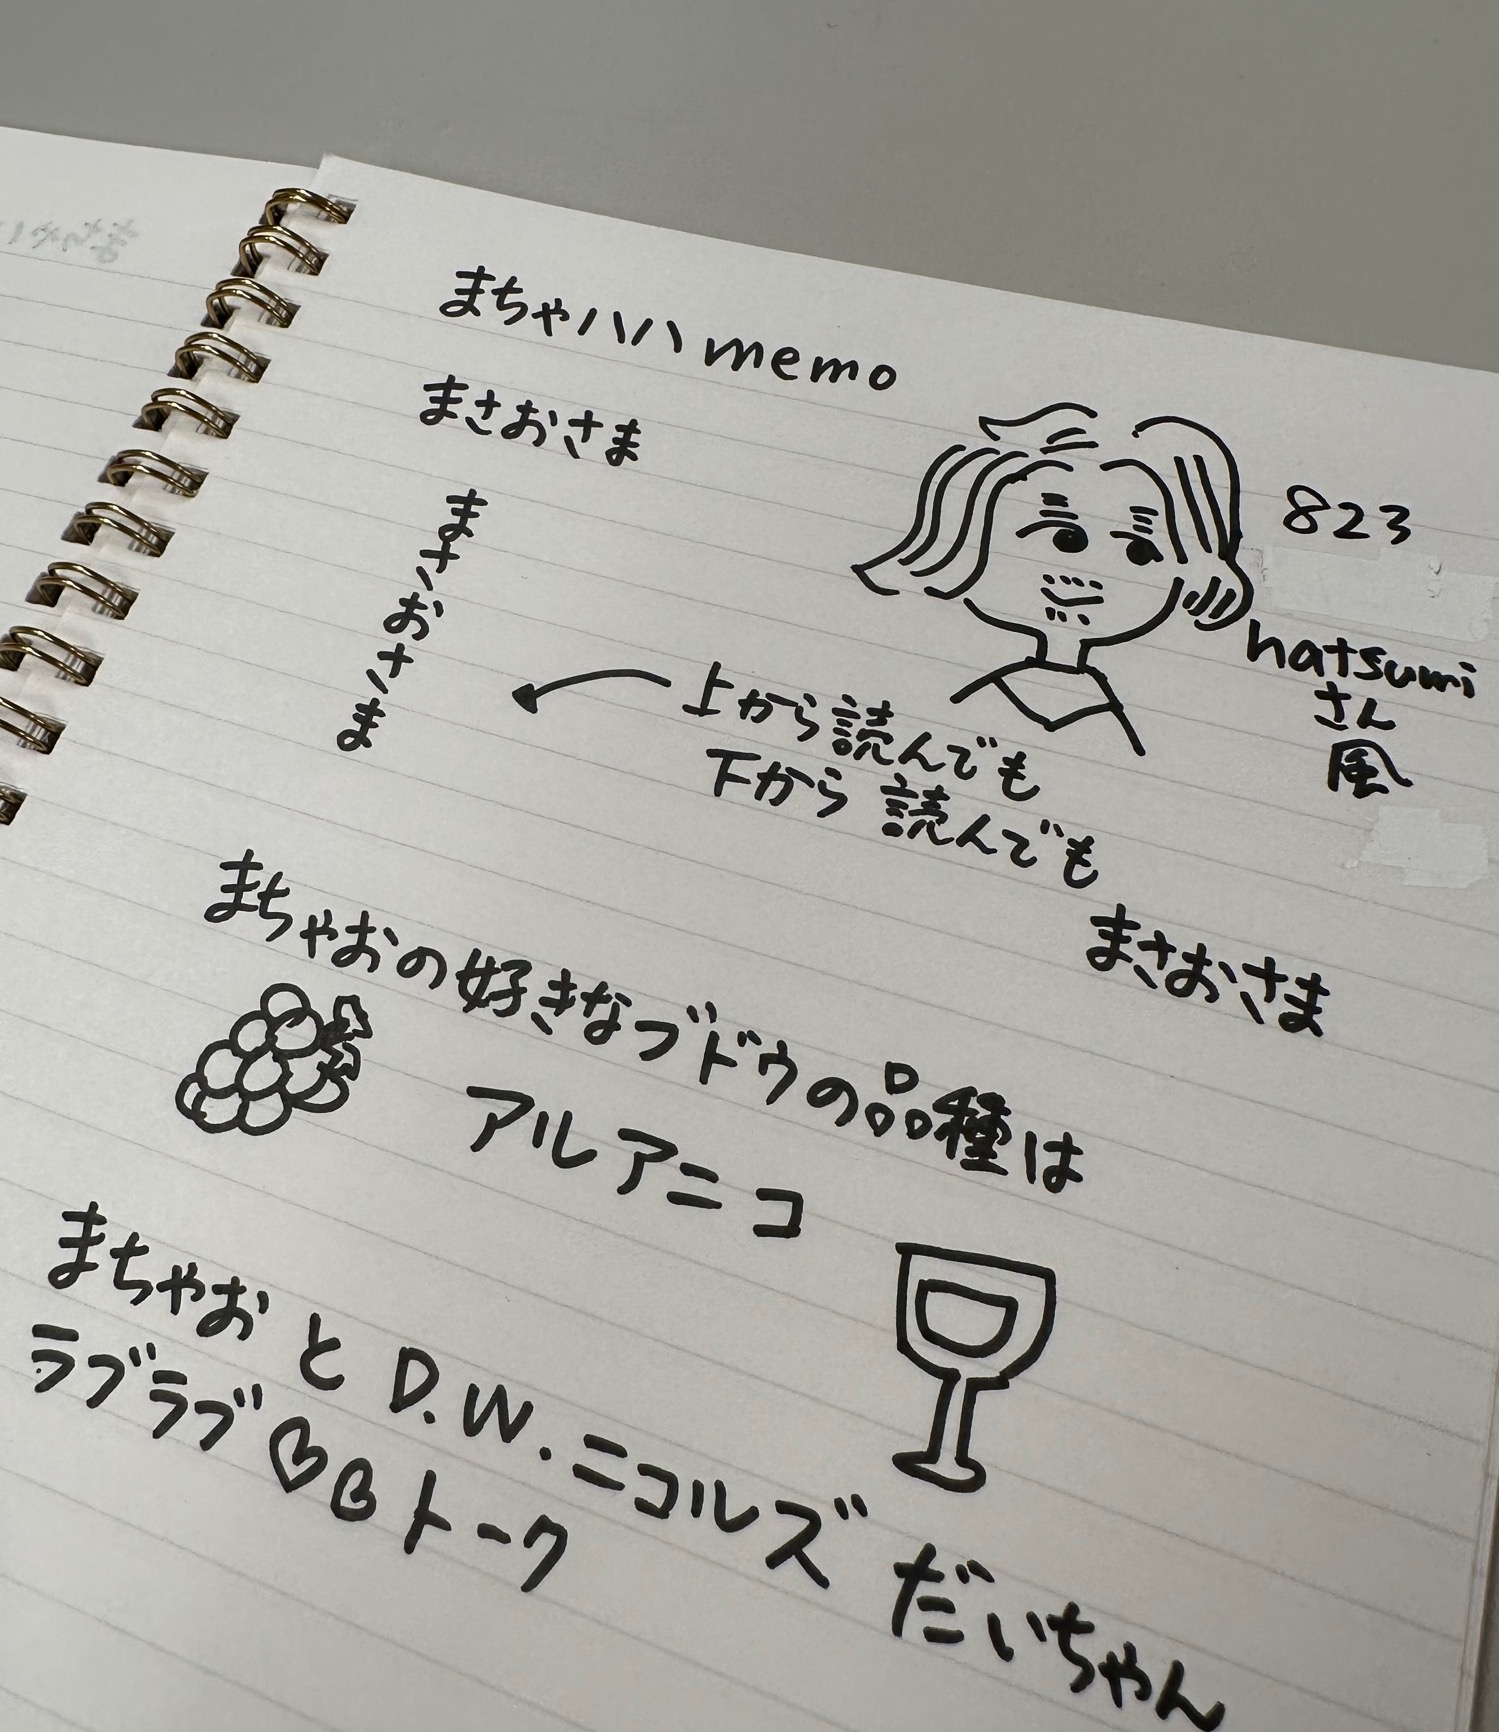 まちゃハハ memo
まさおさま
まさおさま
823
natsumi
さん
風
上から読んでも
下から読んでも
まさおさま
まちゃおの好きなブドウの品種は
アルアニコ
まちゃお と D.W.ニコルズ だいちゃん
ラブラブ♡♡トーク